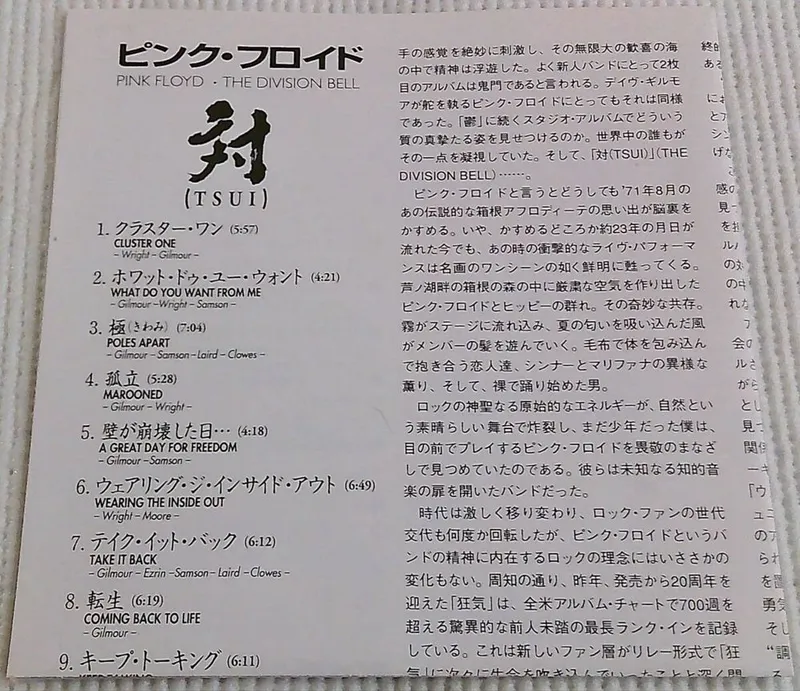 ピンク・フロイド
PINK FLOYD · THE DIVISION BELL
対
(TSUI)
1. クラスター・ワン (5:57)
CLUSTER ONE
– Wright – Gilmour –
2. ホワット・ドゥ・ユー・ウォント (4:21)
WHAT DO YOU WANT FROM ME
– Gilmour –Wright – Samson –
3. 極(きわみ) (7:04)
POLES APART
– Gilmour – Samson – Laird – Clowes –
4. 孤立 (5:28)
MAROONED
– Gilmour – Wright –
5. 壁が崩壊した日… (4:18)
A GREAT DAY FOR FREEDOM
– Gilmour –Samson –
6. ウェアリング・ジ・インサイド・アウト (6:49)
WEARING THE INSIDE OUT
– Wright – Moore –
7. テイク・イット・バック (6:12)
TAKE IT BACK
– Gilmour – Ezrin –Samson – Laird –Clowes –
8. 転生 (6:19)
COMING BACK TO LIFE
– Gilmour –
9. キープ・トーキング (6:11)
手の感覚を絶妙に刺激し、その無限大の歓喜の海
の中で精神は浮遊した。よく新人バンドにとって2枚
目のアルバムは鬼門であると言われる。デイヴ・ギルモ
アが舵を執るピンク・フロイドにとってもそれは同様
であった。「鬱」に続くスタジオ・アルバムでどういう
質の真摯たる姿を見せつけるのか。世界中の誰もが
その一点を凝視していた。そして、「対(TSUI)」(THE
DIVISION BELL)……。
ピンク・フロイドと言うとどうしても'71年8月の
あの伝説的な箱根アフロディーテの思い出が脳裏を
かすめる。いや、かすめるどころか約23年の月日が
流れた今でも、あの時の衝撃的なライヴ・パフォーマ
ンスは名画のワンシーンの如く鮮明に甦ってくる。
芦ノ湖畔の箱根の森の中に厳粛な空気を作り出した
ピンク・フロイドとヒッピーの群れ。その奇妙な共存。
霧がステージに流れ込み、夏の匂いを吸い込んだ風
がメンバーの髪を遊んでいく。毛布で体を包み込ん
で抱き合う恋人達、シンナーとマリファナの異様な
薫り、そして、裸で踊り始めた男。
ロックの神聖なる原始的なエネルギーが、自然とい
う素晴らしい舞台で炸裂し、まだ少年だった僕は、
目の前でプレイするピンク・フロイドを畏敬のまなざ
しで見つめていたのである。彼らは未知なる知的音
楽の扉を開いたバンドだった。
時代は激しく移り変わり、ロック・ファンの世代
交代も何度か回転したが、ピンク・フロイドというバ
ンドの精神に内在するロックの理念にはいささかの
変化もない。周知の通り、昨年、発売から20周年を
迎えた「狂気」は、全米アルバム・チャートで700週を
超える驚異的な前人未踏の最長ランク・インを記録
している。これは新しいファン層がリレー形式で「狂
気」に次々に生命を吹き込んでいったことと深く関